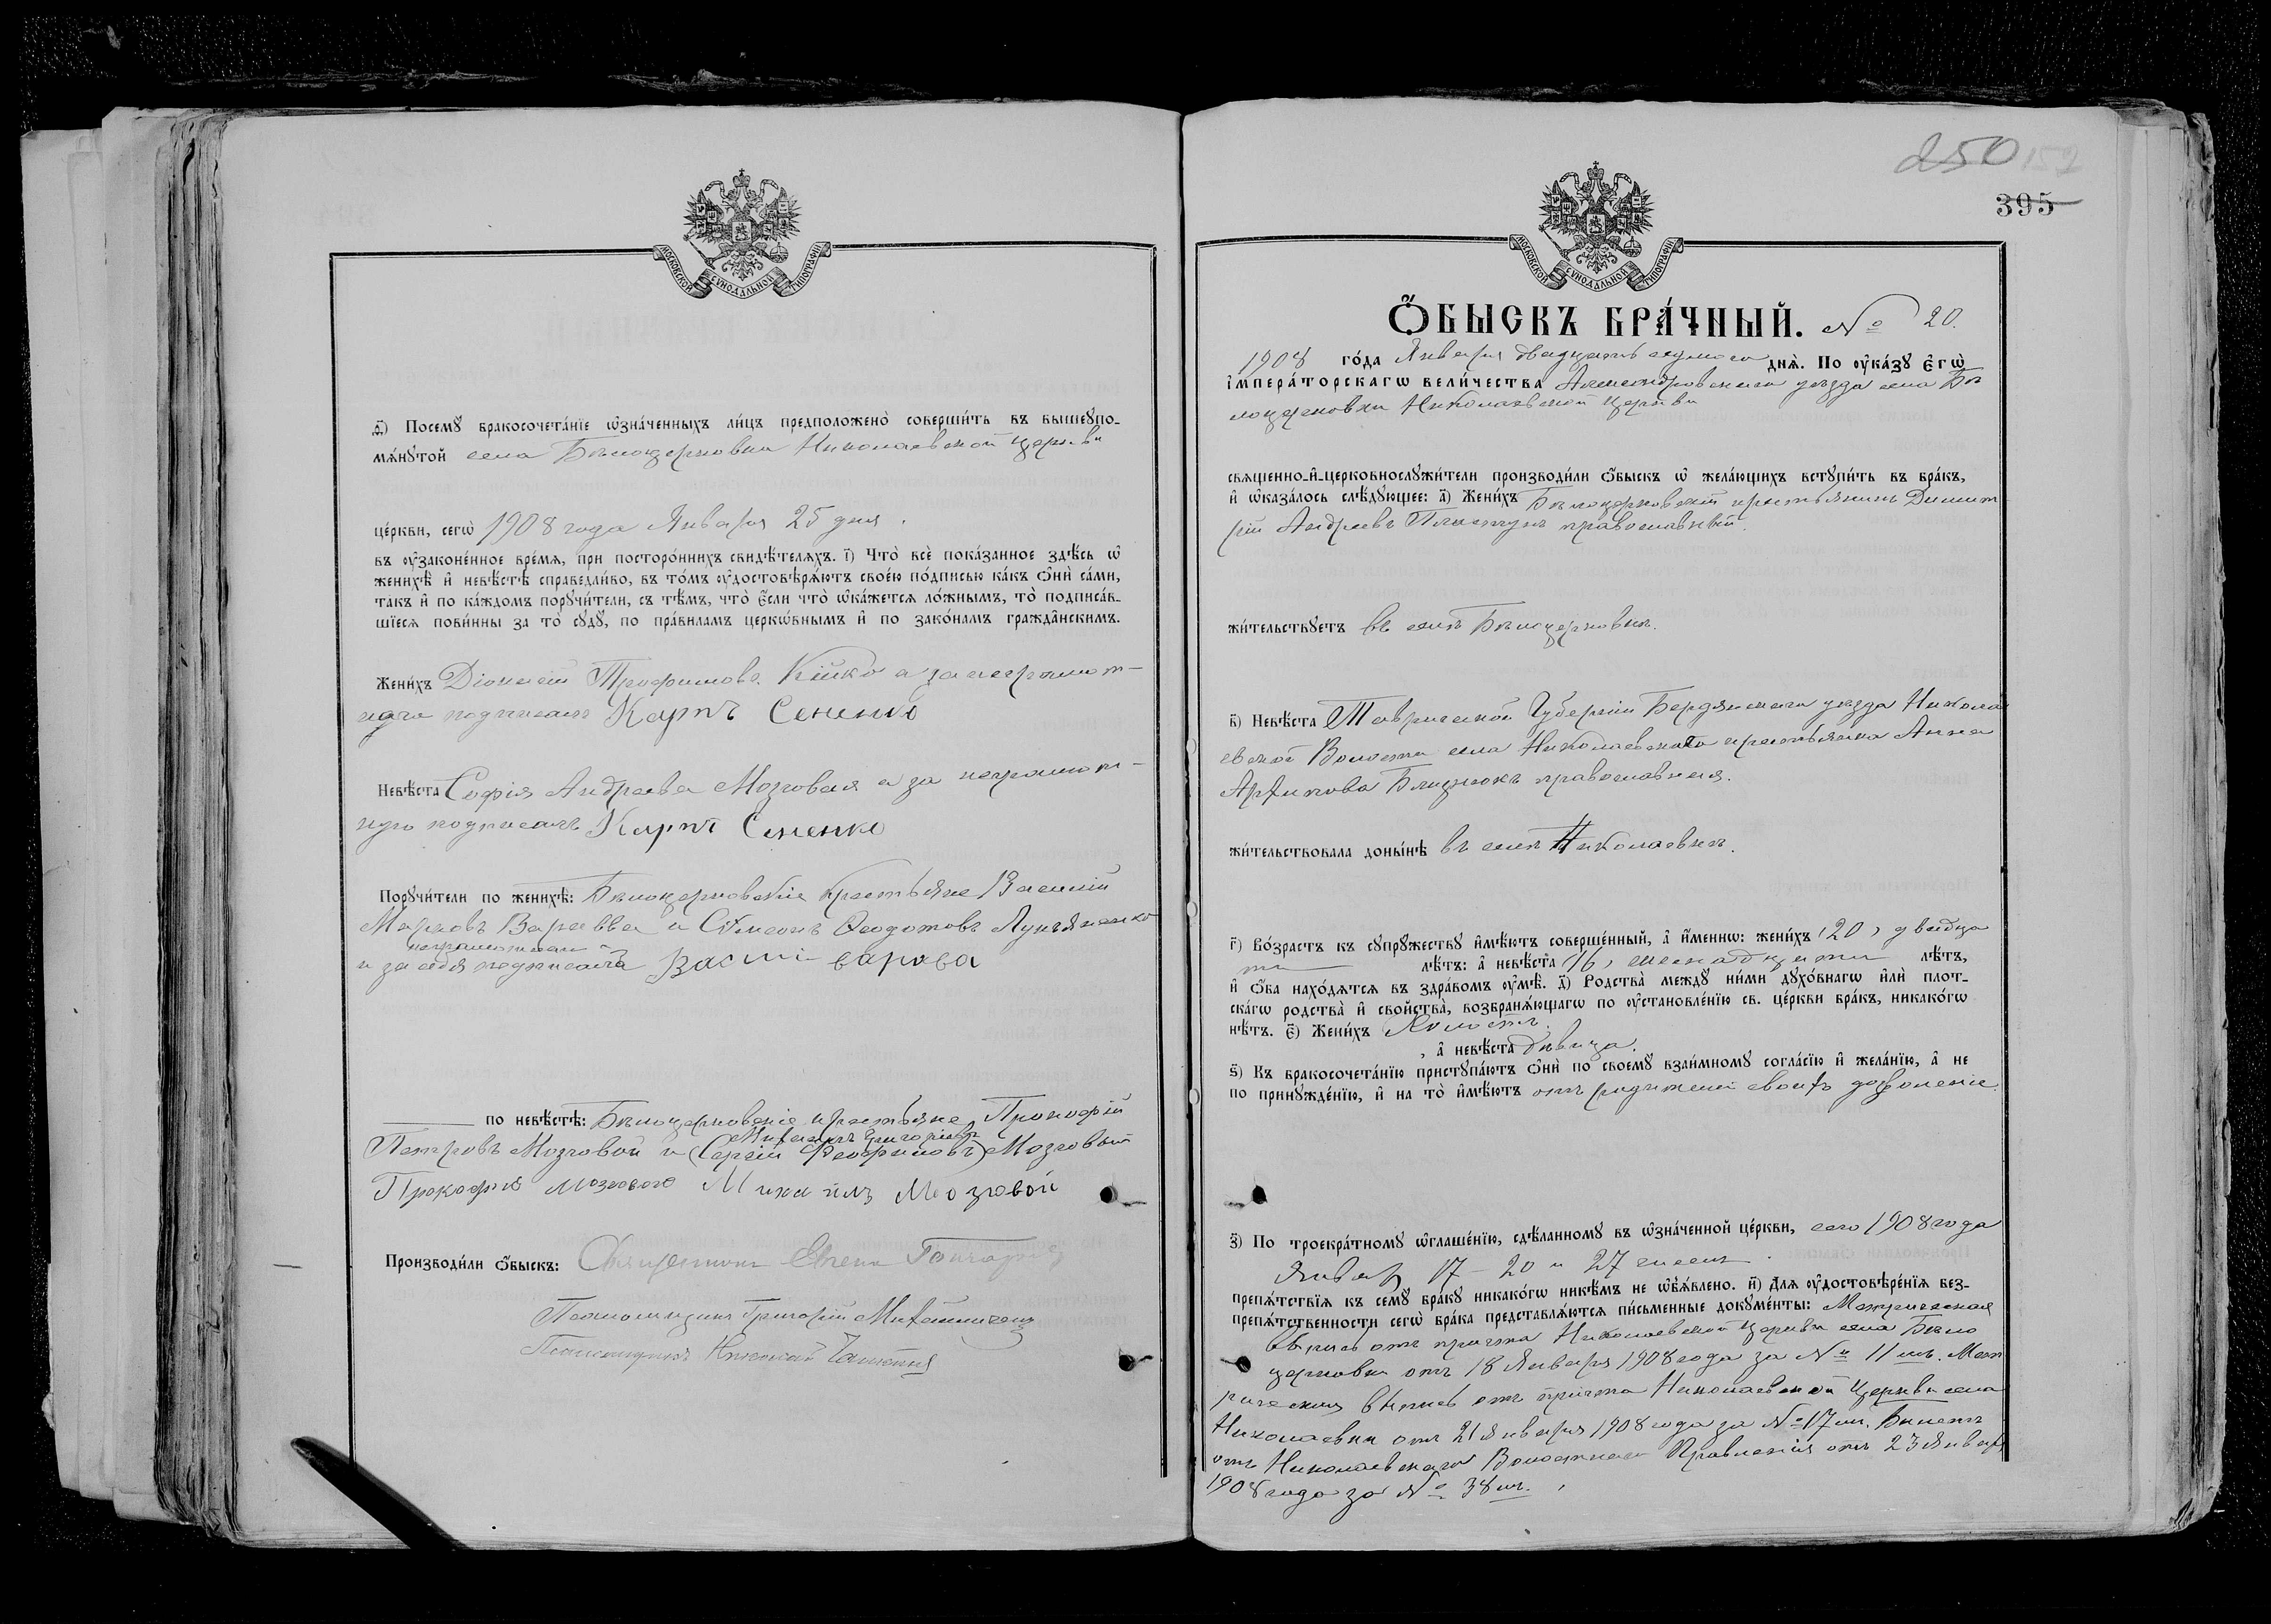 МОСКОВСКОЙ СѴНОДАЛЬНОЙ ТИПОГРАФІИ
ѳ҃) Посемꙋ бракосочета́нїе ѡ҆зна́ченныхъ ли́цъ предположено̀ соверши́ть въ вышеꙋпо-
мѧ́нꙋтой села Бѣлоцерковки Николаевской церкви
це́ркви, сегѡ̀ 1908 года Января 25 дня.
въ ᲂу҆законе́нное вре́мѧ, при посторо́ннихъ свидѣ́телѧхъ. і҃) Что̀ всѐ пока́занное здѣ́сь ѡ҆
женихѣ̀ и҆ невѣ́стѣ справедли́во, въ то́мъ ᲂу҆достовѣрѧ́ютъ свое́ю по́дписью ка́къ ѻ҆нѝ са́ми,
та́къ и҆ по ка́ждомъ порꙋчи́тели, съ тѣ́мъ, что̀ є҆́сли что̀ ѡ҆ка́жетсѧ ло́жнымъ, то̀ подписа́в-
шїесѧ пови́нны за то̀ сꙋдꙋ̀, по пра́виламъ церкѡ́внымъ и҆ по зако́намъ гражда̑нскимъ.
Жени́хъ Діонисій Трофимовъ Кійко а за неграмот-
наго подписалъ Карпъ Сененко
Невѣ́ста Софія Андреева Мозговая а за неграмот-
ную подписалъ Карпъ Сененко
Порꙋчи́тели по женихѣ̀: Бѣлоцерковскіе крестьяне Василій
Марковъ Варавва и Сѵмеонъ Ѳеодотовъ Лукьяненко
неграмотный
и за себя подписалъ Василій варава
по невѣ́стѣ: Бѣлоцерковскіе крестьяне Прокофій
Михаилъ Григоріевъ
Петровъ Мозговой и (Сергій Трофимовъ) Мозговый
Прокофія Мозгового Михаилъ Мозговой
Производи́ли ѻ҆́быскъ: Священникъ Гончаровъ
Псаломщикъ Григорій
Псаломщикъ Николай
250
395
МОСКОВСКОЙ СѴНОДАЛЬНОЙ ТИПОГРАФІИ
Ѻ҆́БЫСКЪ БРА́ЧНЫЙ. № 20.
1908 го́да Января двадцать седьмого днѧ̀. По ᲂу҆ка́зꙋ є҆гѡ̀
и҆мпера́торскагѡ вели́чества Александровскаго уѣзда села Бѣ
лоцерковки Николаевской церкви
свѧщенно-и҆-церковнослꙋжи́тели производи́ли ѻ҆́быскъ ѡ҆ жела́ющихъ встꙋпи́ть въ бра́къ,
и҆ ѡ҆каза́лось слѣ́дꙋющее: а҃) Жени́хъ Бѣлоцерковскій крестьянинъ Димит
рій Андреевъ православный.
жи́тельствꙋетъ въ селѣ Бѣлоцерковкѣ.
в҃) Невѣ́ста Таврической Губерніи Бердянскаго уѣзда Никола
евской Волости села Николаевскаго крестьянка Анна
Архипова Близнюкъ православная.
жи́тельствовала доны́нѣ въ селѣ Николаевкѣ.
г҃) Во́зрастъ къ сꙋпрꙋ́жествꙋ и҆мѣ́ютъ соверше́нный, а҆ и҆́меннѡ: жени́хъ (20) двадца
ти лѣ́тъ: а҆ невѣ́ста 16, шестнадцати лѣ́тъ,
и҆ ѻ҆́ба нахо́дѧтсѧ въ здра́вомъ ᲂу҆мѣ̀. д҃) Родства̀ междꙋ ни́ми дꙋхо́внагѡ и҆лѝ плот-
ска́гѡ родства̀ и҆ сво́йства̀, возбранѧ́ющагѡ по ᲂу҆становле́нїю св. це́ркви бра́къ, никако́гѡ
нѣ́тъ. є҃) Жени́хъ Холостъ.
, а҆ невѣ́ста дѣвица.
ѕ҃) Къ бракосочета́нїю пристꙋпа́ютъ ѻ҆нѝ по своемꙋ̀ взаи́мномꙋ согла́сїю и҆ жела́нїю, а҆ не
по принꙋжде́нїю, и҆ на то̀ и҆мѣ́ютъ отъ родителей своихъ дозволеніе.
з҃) По троекра́тномꙋ ѡ҆глаше́нїю, сдѣ́ланномꙋ въ ѡ҆зна́ченной це́ркви, сего 1908 года
Январ 17 - 20 и 27 чиселъ.
препѧ́тствїѧ къ семꙋ̀ бра́кꙋ никако́гѡ никѣ́мъ не ѡ҆б̾ѧ́влено. и҃) Длѧ ᲂу҆достовѣре́нїѧ без-
препѧ́тственности сегѡ̀ бра́ка представлѧ́ютсѧ пи́сьменные докꙋме́нты: Метрическая
выпись отъ причта Николаевской церкви села Бѣло
церковки отъ 18 Января 1908 года за № 11 мъ. Мет
рическая выпись отъ причта Николаевской церкви села
Николаевки отъ 21 Января 1908 года за № 17 мъ. Билетъ
отъ Николаевскаго Волостнаго Правленія отъ 23 Январ
1908 года за № 38 мъ.